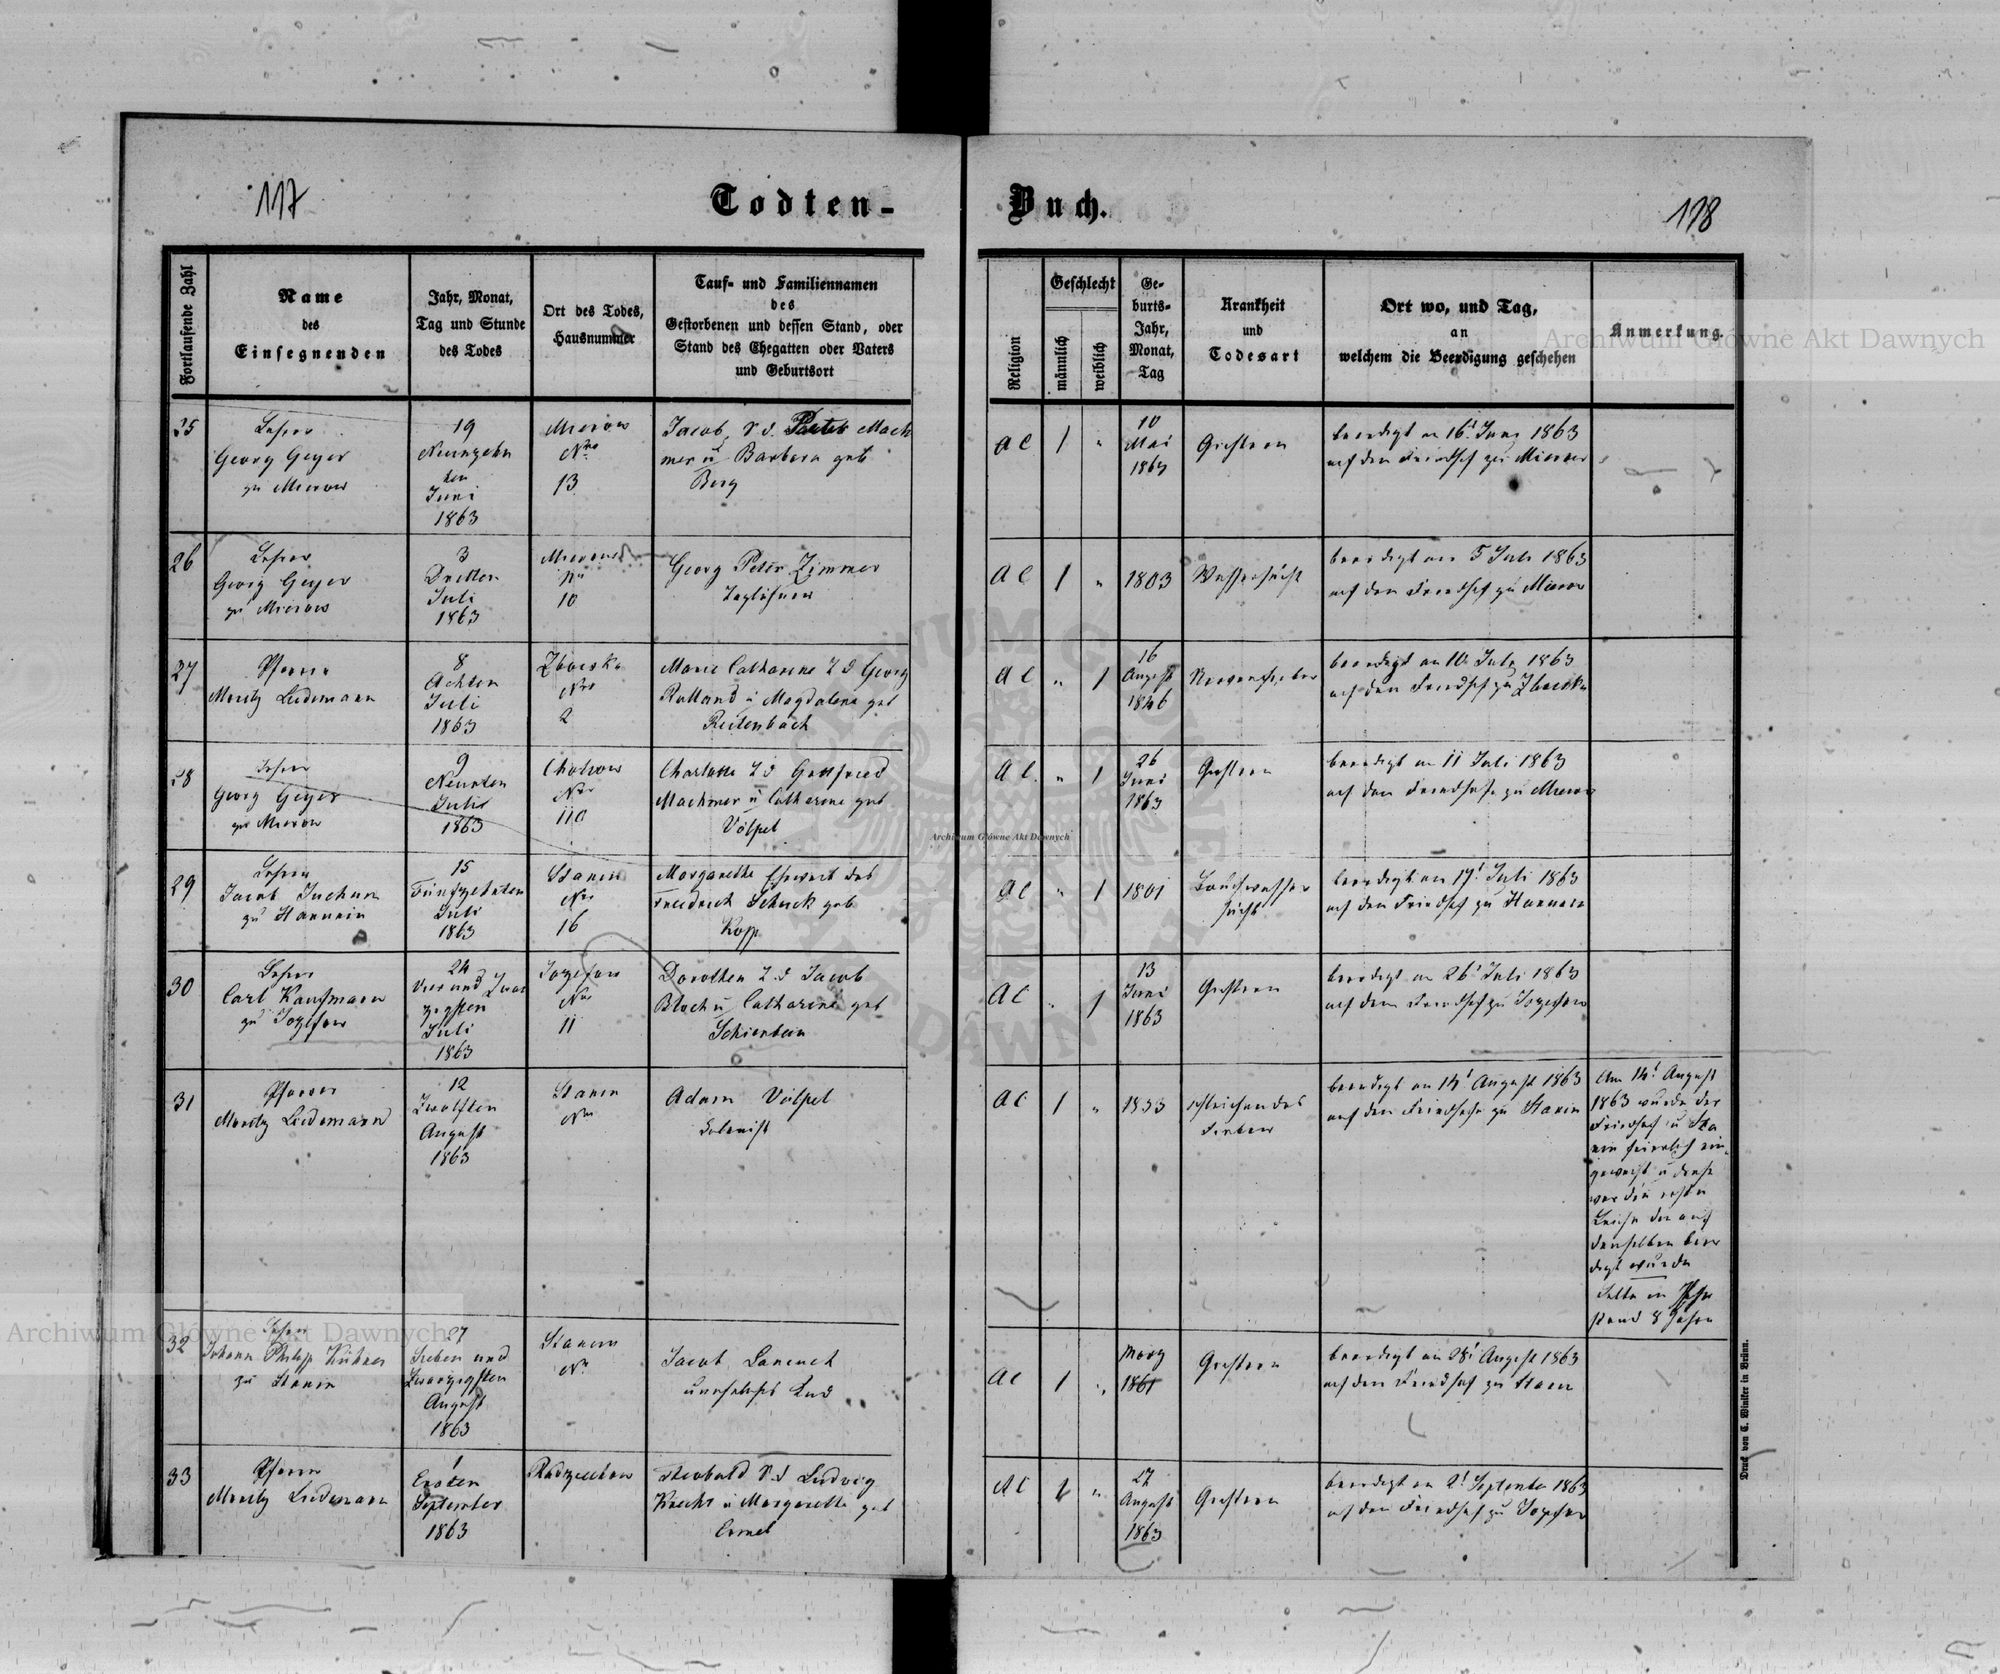 117
Todten-
Buch.
118
Fortlaufende Zahl
Name
des
Einsegnenden
Jahr, Monat,
Tag und Stunde
des Todes
Ort des Todes,
Hausnummer
Tauf- und Familiennamen
des
Gestorbenen und dessen Stand, oder
Stand des Ehegatten oder Vaters
und Geburtsort
Religion
Geschlecht
männlich
weiblich
Ge-
burts-
Jahr,
Monat,
Tag
Krankheit
und
Todesart
Ort wo, und Tag,
an
welchem die Beerdigung geschehen
Anmerkung.
25
Lehrer
Georg Geyer
zu Mierow
19
Neunzehn
ten
Juni
1863
Mierow
Nro
13
Jacob, S. d. Peter Mach
mer u Barbara geb
Berg
AC
1
"
10
Mai
1863
beerdigt am 16t Juny 1863
auf dem Friedhof zu Mierow
26
Lehrer
Georg Geyer
zu Mierow
3
Dritten
Juli
1863
Mierow
Nro
10
Georg Peter Zimmer
Taglöhner
AC
1
"
1803
Wassersucht
beerdigt am 5 Juli 1863
auf dem Friedhof zu Mierow
27
Pfarrer
Moritz Liedemann
8
Achten
Juli
1863
Zboiska
Nro
2
Marie Catharine T d Georg
Rolland u Magdalena geb
Reitenbach
AC
"
1
16
August
1846
Nervenfieber
beerdigt am 10 July 1863
auf dem Friedhof zu Zboiska
28
Lehrer
Georg Geyer
zu Mierow
9
Neunten
Juli
1863
Chohow
Nro
110
Charlotte T d Gottfried
Machmer u Catharine geb
Völpel
AC
"
1
26
Juni
1863
beerdigt am 11 Juli 1863
auf dem Friedhofe zu Mierow
29
Lehrer
Jacob Juchum
zu Hanunin
15
Fünfzehnten
Juli
1863
Stanin
Nro
16
Margaretha Eheweib des
Friedrich Schuck geb
Kopp
AC
"
1
1801
Bauchwasser
sucht
beerdigt am 17t Juli 1863
auf dem Friedhof zu Hanunin
30
Lehrer
Carl Kaufmann
zu Jozefow
24
Vier und Zwan
zigsten
Juli
1863
Jozefow
Nro
11
Dorothea T d Jacob
Bloch u Catharina geb
Schierbein
AC
"
1
13
Juni
1863
beerdigt am 26t Juli 1863
auf dem Friedhof zu Jozefow
31
Pfarrer
Moritz Liedemann
12
Zwölften
August
1863
Stanin
Nro
Adam Völpel
Kolonist
AC
1
"
1833
schleichendes
Fieber
beerdigt am 14t August 1863
auf dem Friedhofe zu Stanin
Am 14t August
1863 wurde der
Friedhof zu Sta
nin feierlich ein-
geweiht u diese
war die erste
Leiche die auf
demselben beer
digt wurde
Lebte im Ehe
stand 8 Jahre
32
Lehrer
Johann Philipp Kühner
zu Stanin
27
Sieben und
Zwanzigsten
August
1863
Stanin
Nro
Jacob Lanc
uneheliches Kind
AC
1
"
März
1861
beerdigt am 28t August 1863
auf dem Friedhof zu Stanin
33
Pfarrer
Moritz Liedemann
1
Ersten
September
1863
Radziechow
Theobald S. d Ludwig
Knecht u Margaretha geb
Ermel
AC
1
"
27
August
1863
beerdigt am 2t September 1863
auf dem Friedhof zu Jozefow
Druck von C. Winkler in Brünn.
Archiwum Główne Akt Dawnych
Archiwum Główne Akt Dawnych
Archiwum Główne Akt Dawnych
ARCHIWUM GŁÓWNE AKT DAWNYCH